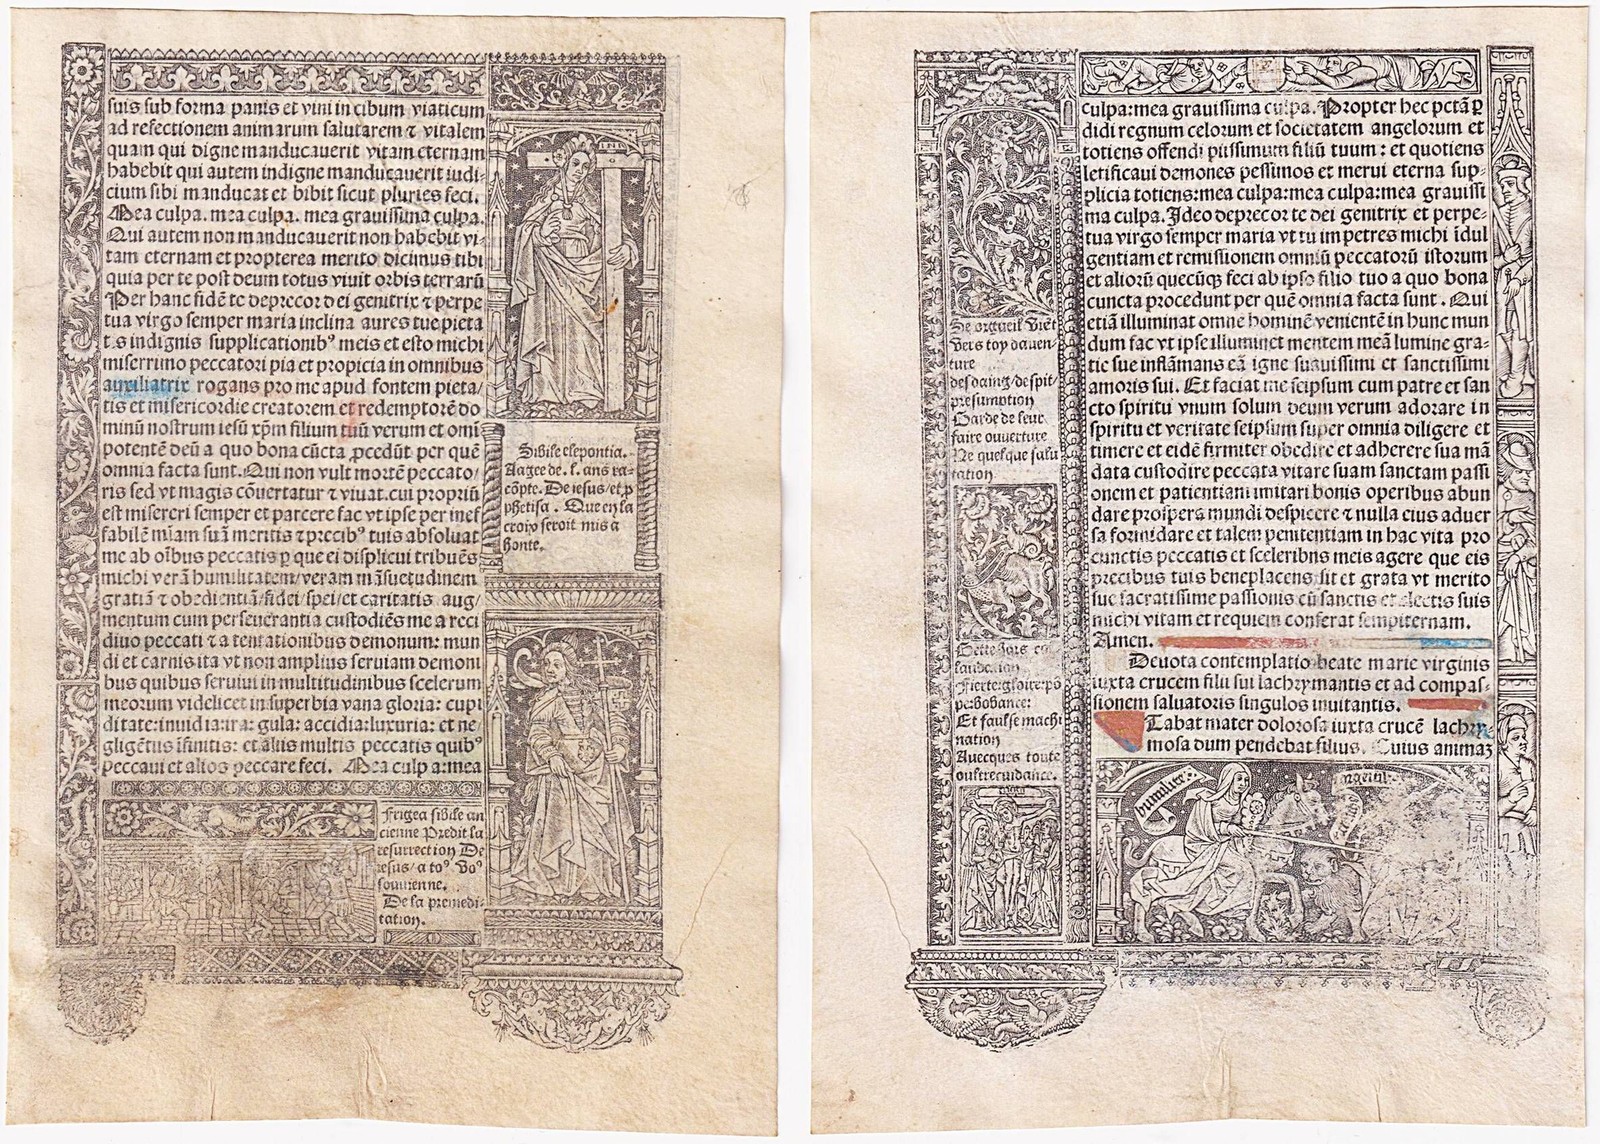 suis sub forma panis et vini in cibum viaticum
ad refectionem animarum salutarem ⁊ vitalem
quam qui digne manducauerit vitam eternam
habebit qui autem indigne manducauerit iudi-
cium sibi manducat et bibit sicut pluries feci.
Mea culpa. mea culpa. mea grauissima culpa.
Qui autem non manducauerit non habebit vi-
tam eternam et propterea merito dicimus tibi
quia per te post deum totus viuit orbis terrarū
Per hanc fidē te deprecor dei genitrix ⁊ perpe
tua virgo semper maria inclina aures tue pieta
tis indignis supplicationibꝰ meis et esto michi
miserrimo peccatori pia et propicia in omnibus
auxiliatrix rogans pro me apud fontem pieta/
tis et misericordie creatorem et redemptorē do
minū nostrum iesū xp̄m filium tuū verum et omi
potentē deū a quo bona cūcta ꝓcedūt per quē
omnia facta sunt. Qui non vult mortē peccato/
ris sed vt magis cōuertatur ⁊ viuat. cui propriū
est misereri semper et parcere fac vt ipse per inef
fabilē mīam suā meritis ⁊ precibꝰ tuis absoluat
me ab oībus peccatis ꝑ que ei displicui tribuēs
michi verā humilitatem/veram māsuetudinem
gratiā ⁊ obedientiā/fidei/spei/et caritatis aug/
mentum cum perseuerantia custodiēs me a reci
diuo peccati ⁊ a temtationibus demonum: mun
di et carnis ita vt non amplius seruiam demoni
bus quibus seruiui in multitudinibus scelerum
meorum videlicet in superbia vana gloria: cupi
ditate: inuidia: ira: gula: accidia: luxuria: et ne
gligētiis īfinitis: et aliis multis peccatis quibꝰ
peccaui et alios peccare feci. Mea culpa: mea
INRI
Sibile elespontia.
Aagee de. l. ans ra-
cōpte. De iesus/et ꝓ
phetisa. Que en la
croix seroit mis a
honte.
Frigea sibile an
cienne Predit la
resurrection De
iesus/a toꝰ voꝰ
souuienne.
De la premedi-
tation.
culpa: mea grauissima culpa. Propter hec pctā ꝑ
didi regnum celorum et societatem angelorum et
totiens offendi piissimum filiū tuum: et quotiens
letificaui demones pessimos et merui eterna sup-
plicia totiens: mea culpa: mea culpa: mea grauissi
ma culpa. Ideo deprecor te dei genitrix et perpe-
tua virgo semper maria vt tu impetres michi īdul
gentiam et remissionem omniū peccatorū istorum
et aliorū quecūqꝫ feci ab ipso filio tuo a quo bona
cuncta procedunt per quē omnia facta sunt. Qui
etiā illuminat omnē hominē venientē in hunc mun
dum fac vt ipse illuminet mentem meā lumine gra-
tie sue inflāmans eā igne suauissimi et sanctissimi
amoris sui. Et faciat me seipsum cum patre et san
cto spiritu vnum solum deum verum adorare in
spiritu et veritate seipsum super omnia diligere et
timere et eidē firmiter obedire et adherere sua mā
data custodire peccata vitare suam sanctam passi
onem et patientiam imitari bonis operibus abun
dare prospera mundi despicere ⁊ nulla eius aduer
sa formidare et talem penitentiam in hac vita pro
cunctis peccatis et sceleribus meis agere que eis
precibus tuis beneplacens sit et grata vt merito
sue sacratissime passionis cū sanctis et electis suis
michi vitam et requiem conferat sempiternam.
Amen.
Deuota contemplatio beate marie virginis
iuxta crucem filii sui lachrymantis et ad compas-
sionem saluatoris singulos inuitantis.
Tabat mater dolorosa iuxta crucē lachry
mosa dum pendebat filius. Cuius animaz
De orgueil vient
vers toy dauen-
ture
desdaing/despit/
presumption
Garde de leur
faire ouuerture
Ne quelque salu
tation.
Fierte: gloire: pō
pe: bobance:
Et faulse machi
nation
Auecques toute
oultrecuidance.
humilite